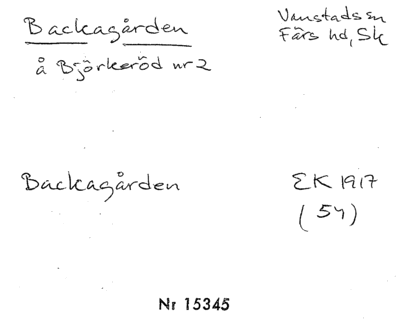 Backagården
å Björkeröd nr 2
Vanstads sn
Färs hd, Sk
Backagården
EK 1917
(54)
Nr 15345